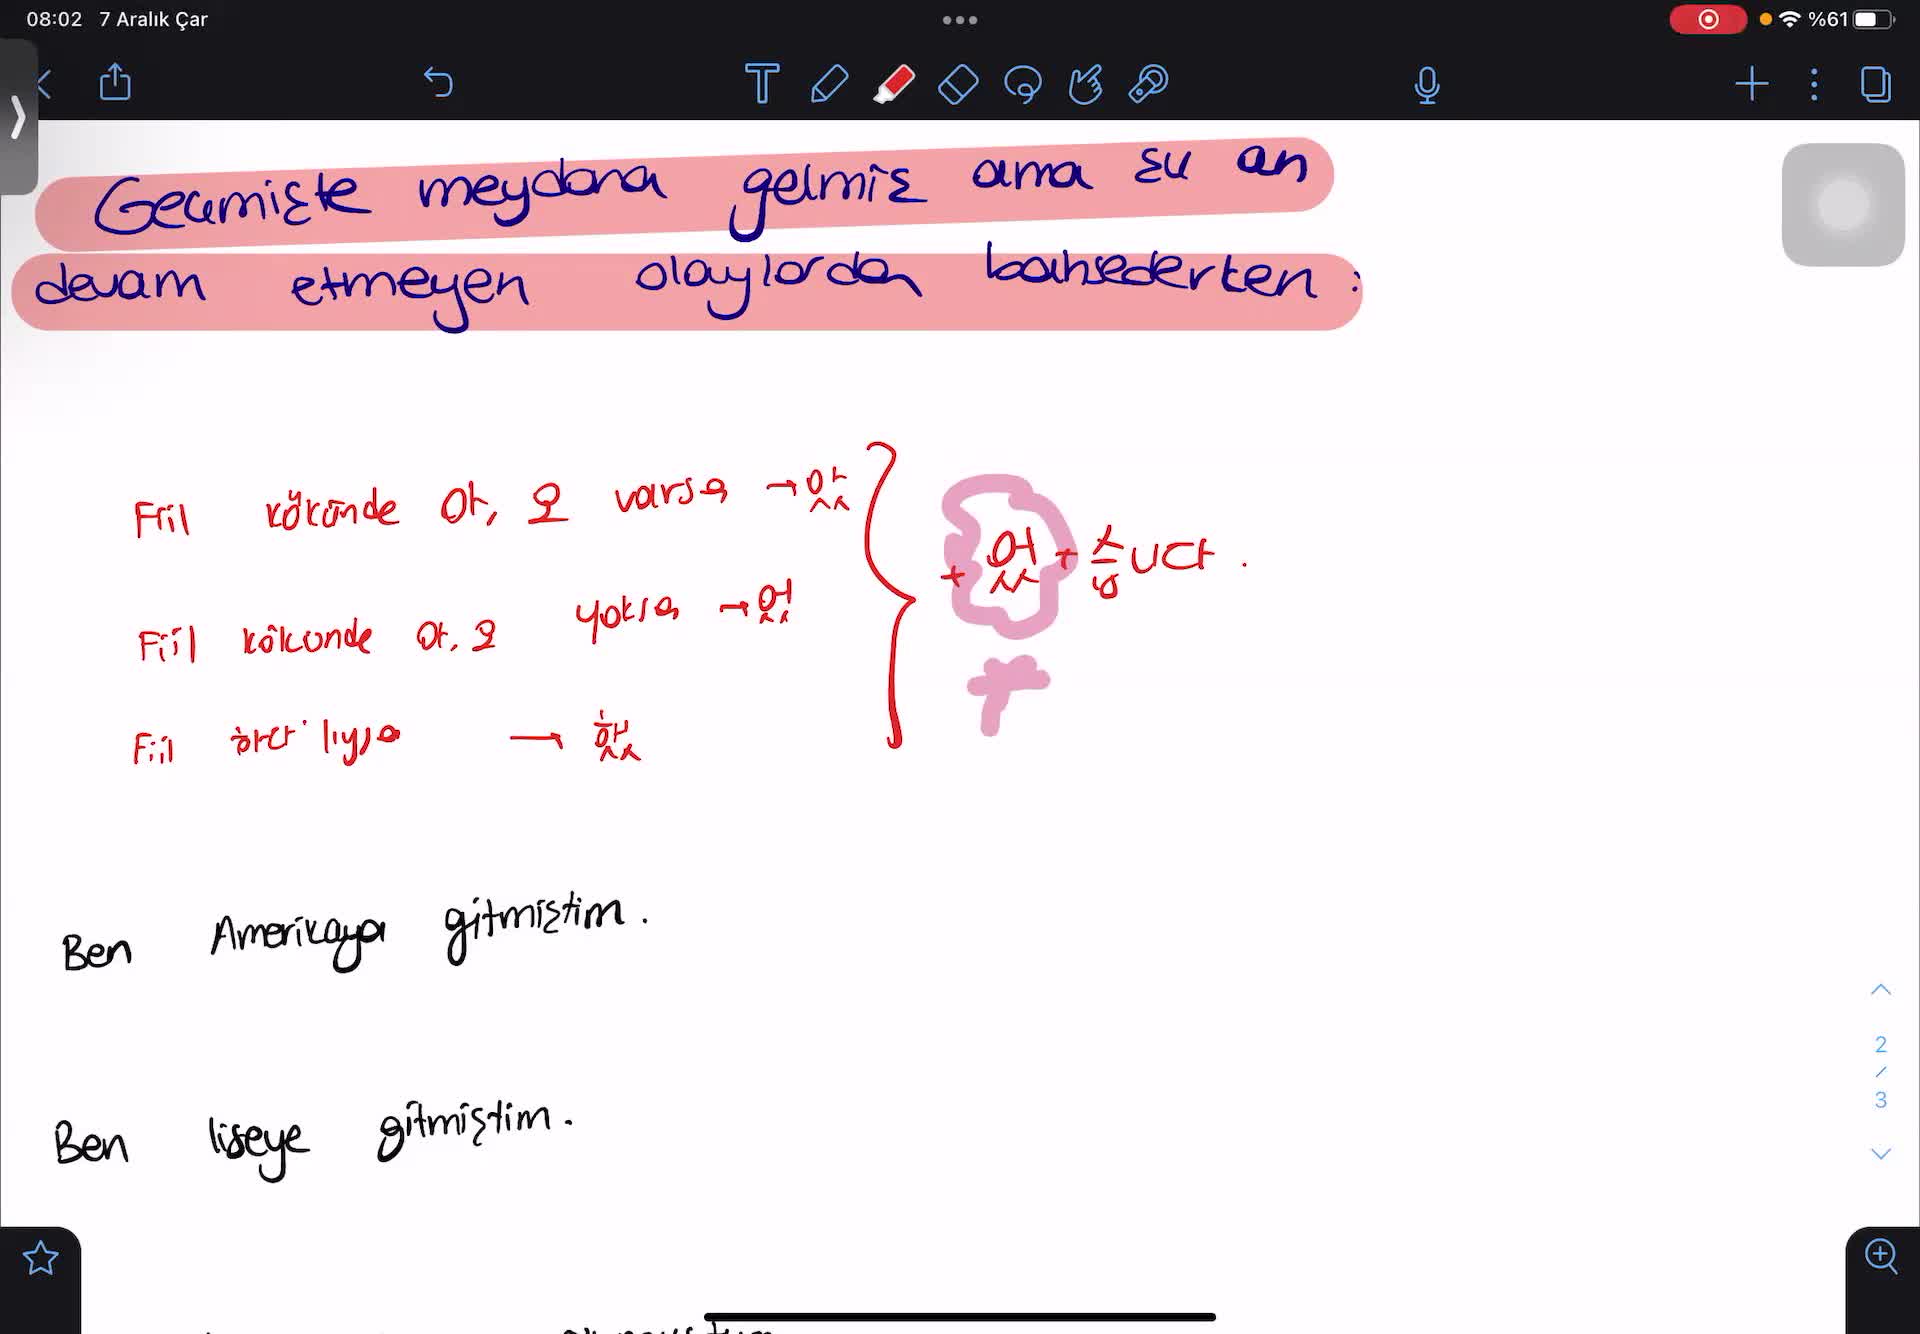 08:02 7 Aralık Çar
%61
Geçmişte meydana gelmiş ama şu an
devam etmeyen olaylardan bahsederken :
Fiil kökünde 아, 오 varsa → 았
Fiil kökünde 아, 오 yoksa → 었
Fiil 하다'lıysa → 했
+ 었 + 습니다.
Ben Amerikaya gitmiştim.
Ben liseye gitmiştim.
2
/
3